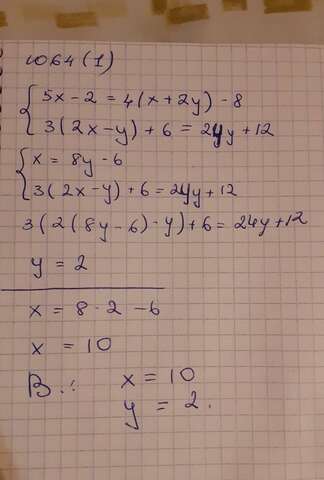 1064 (1)
5x - 2 = 4(x + 2y) - 8
3(2x - y) + 6 = 24y + 12
x = 8y - 6
3(2x - y) + 6 = 24y + 12
3(2(8y - 6) - y) + 6 = 24y + 12
y = 2
x = 8 · 2 - 6
x = 10
В.: x = 10
y = 2.